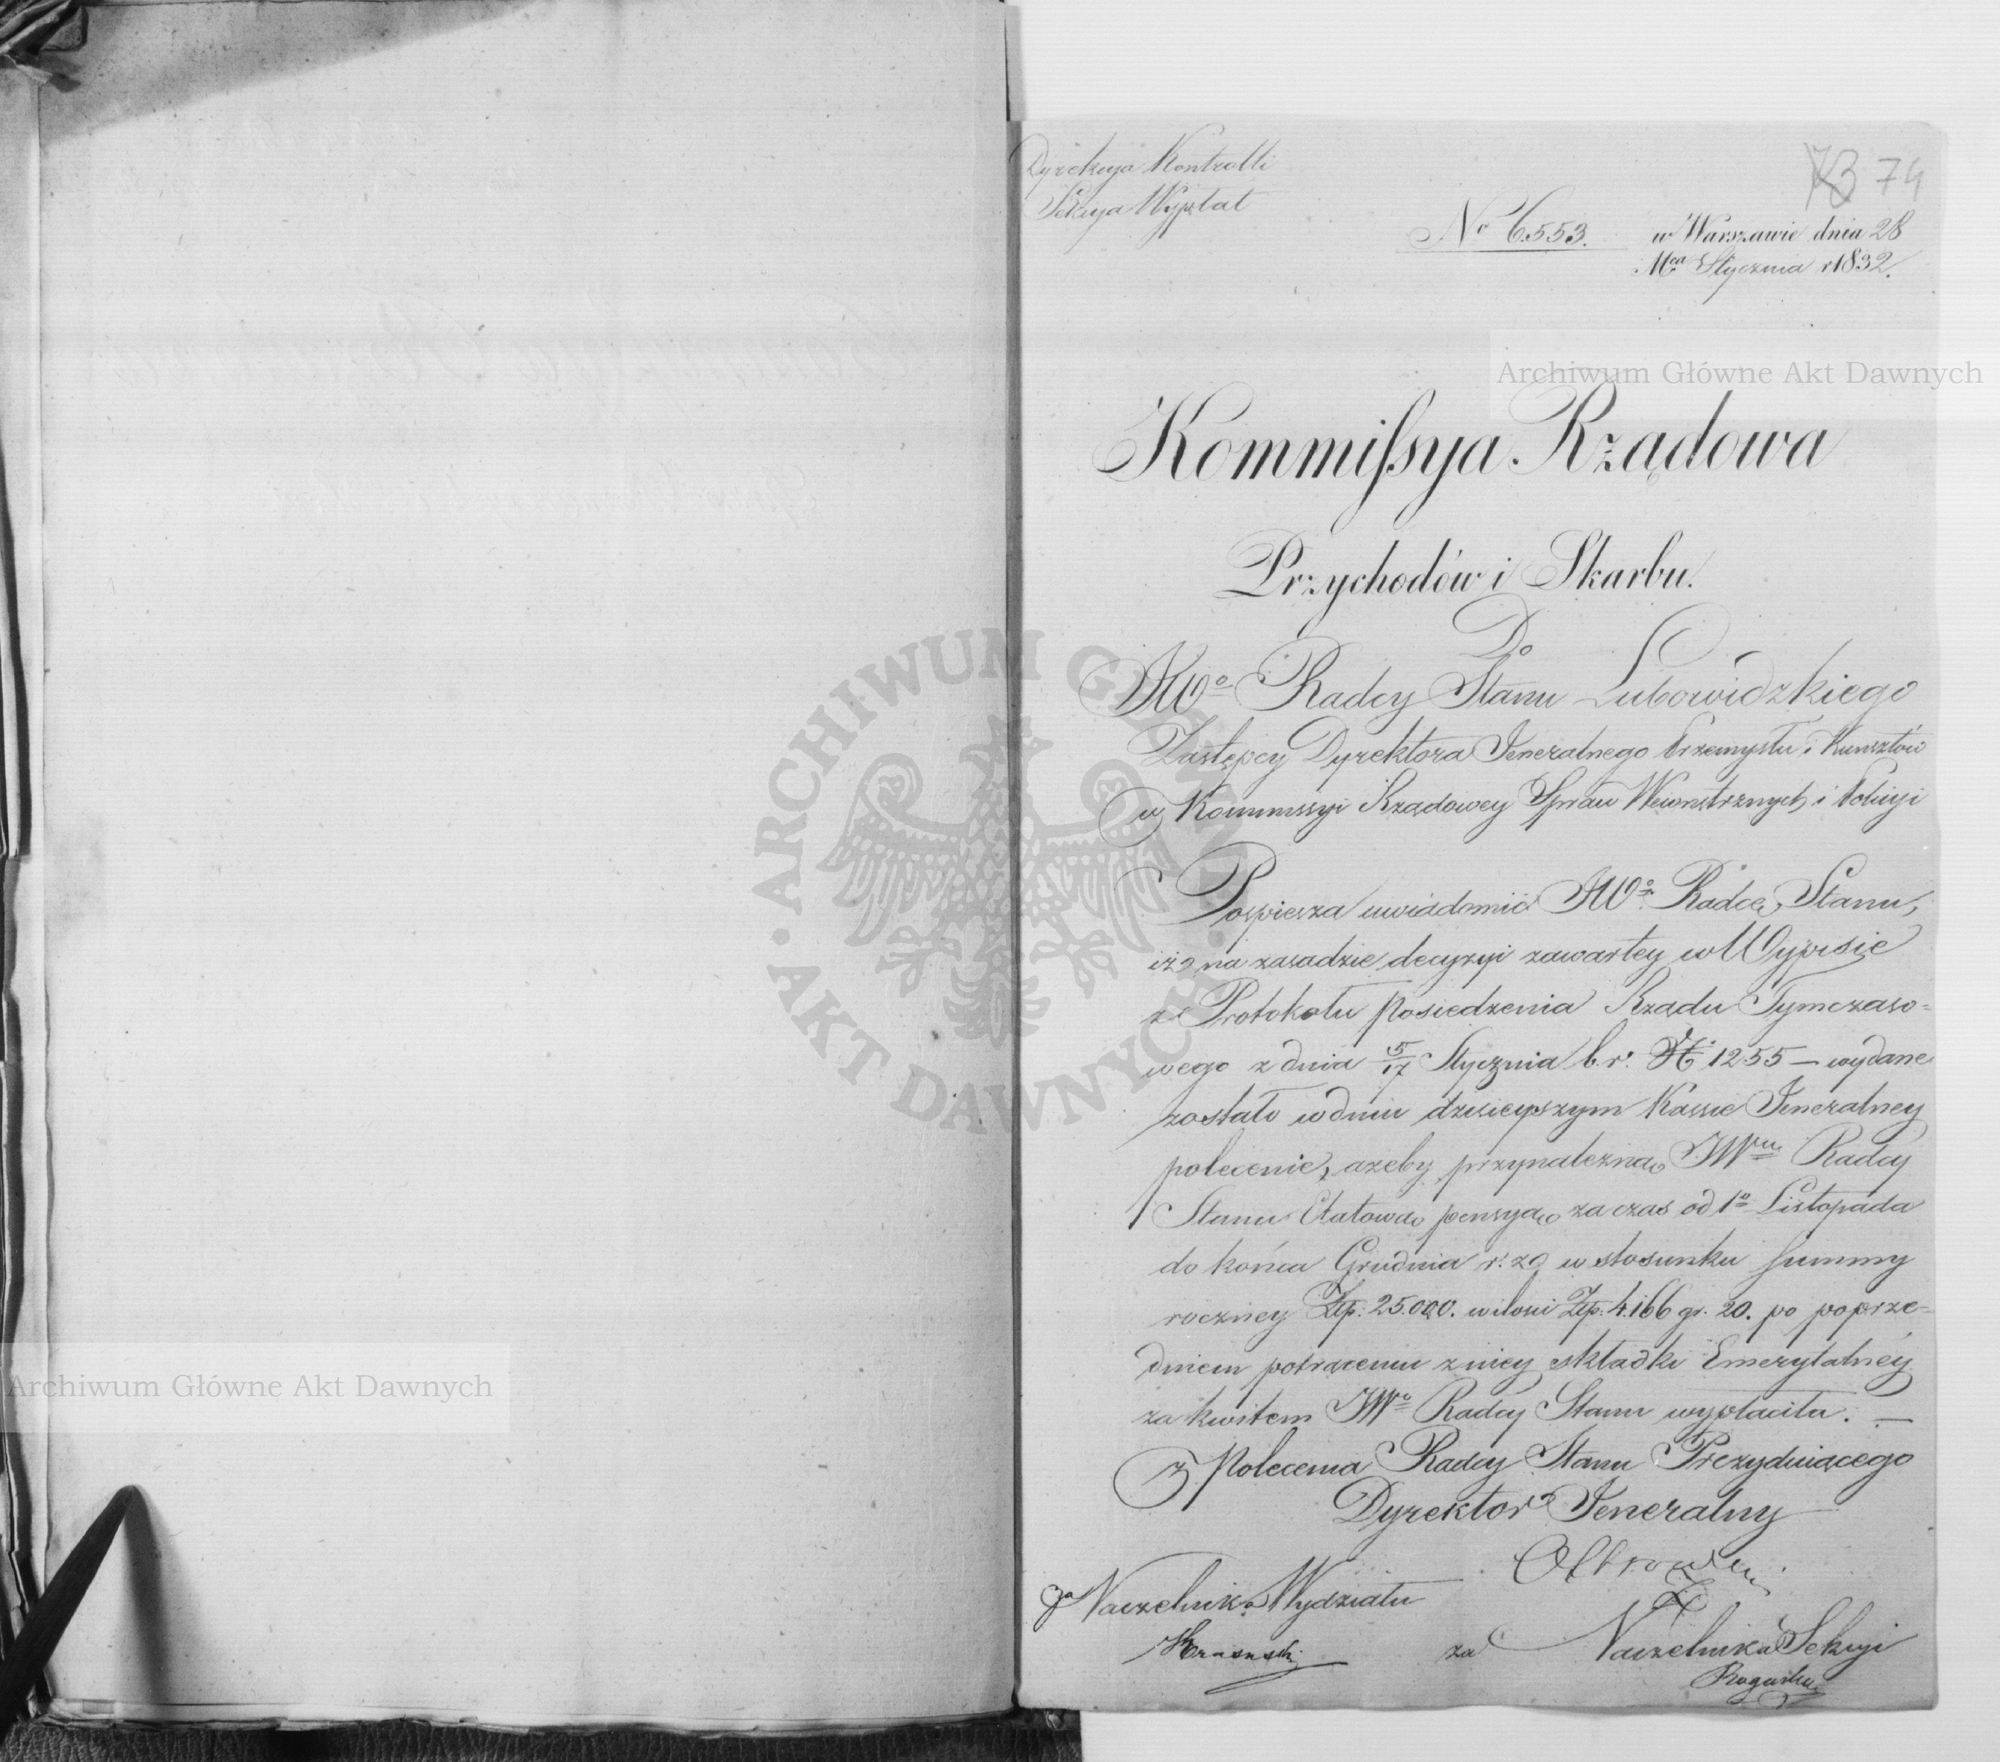 Dyrekcya Kontrolli
Sekcya Wypłat
73 74
No 6553.
w Warszawie dnia 28
Mca Stycznia r 1832.
Archiwum Główne Akt Dawnych
Kommissya Rządowa
Przychodów i Skarbu.
Do
JWo Radcy Stanu Lubowidzkiego
Zastępcy Dyrektora Jeneralnego Przemysłu i Kunsztów
w Kommissyi Rządowey Spraw Wewnętrznych i Policyi
Pospiesza uwiadomić JWo Radcę Stanu,
iż na zasadzie decyzyi zawartey w Wypisie
z Protokołu Posiedzenia Rządu Tymczaso-
wego z dnia 5/17 Stycznia b. r. N 1255 — wydane
zostało w dniu dzisieyszym Kassie Jeneralney
polecenie, ażeby przynależną JWmu Radcy
Stanu Etatową pensyą za czas od 1o Listopada
do końca Grudnia r. z. w stosunku summy
roczney Złp: 25.000. w ilości Złp. 4.166 gr. 20. po poprze-
dniem potrąceniu z niey składki Emerytalney
za kwitem JWo Radcy Stanu wypłaciła. —
Z Polecenia Radcy Stanu Prezyduiącego
Dyrektor Jeneralny
za Naczelnika Wydziału
za Naczelnika Sekcyi
ARCHIWUM GŁÓWNE AKT DAWNYCH
Archiwum Główne Akt Dawnych